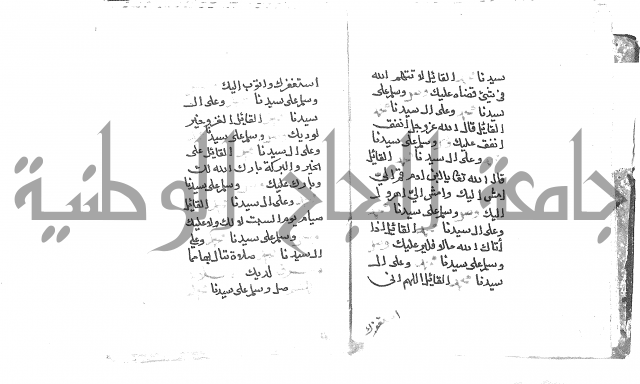 سيدنا القائل لا تتهم الله
في شيء قضاه عليك وسلم على
سيدنا وعلى ال سيدنا
القائل قال الله عز وجل انفق
انفق عليك وسلم على سيدنا
وعلى ال سيدنا القائل
قال الله تعالى يا ابن ادم قم الي
امش اليك وامش الي اهرول
اليك وسلم على سيدنا
وعلى ال سيدنا القائل اذا
أتاك الله مالا فلير عليك
وسلم على سيدنا وعلى ال
سيدنا القائل اللهم اني
استغفرك
استغفرك واتوب اليك
وسلم على سيدنا وعلى ال
سيدنا القائل الغزو خير
لوديك وسلم على سيدنا
وعلى ال سيدنا القائل على
الخير والبركة بارك الله لك
وبارك عليك وسلم على سيدنا
وعلى ال سيدنا القائل
صيام يوم السبت لا لك ولا عليك
وسلم على سيدنا وعلى
ال سيدنا صلاة تنال بها ما
لديك
صل وسلم على سيدنا
جامعة النجاح الوطنية